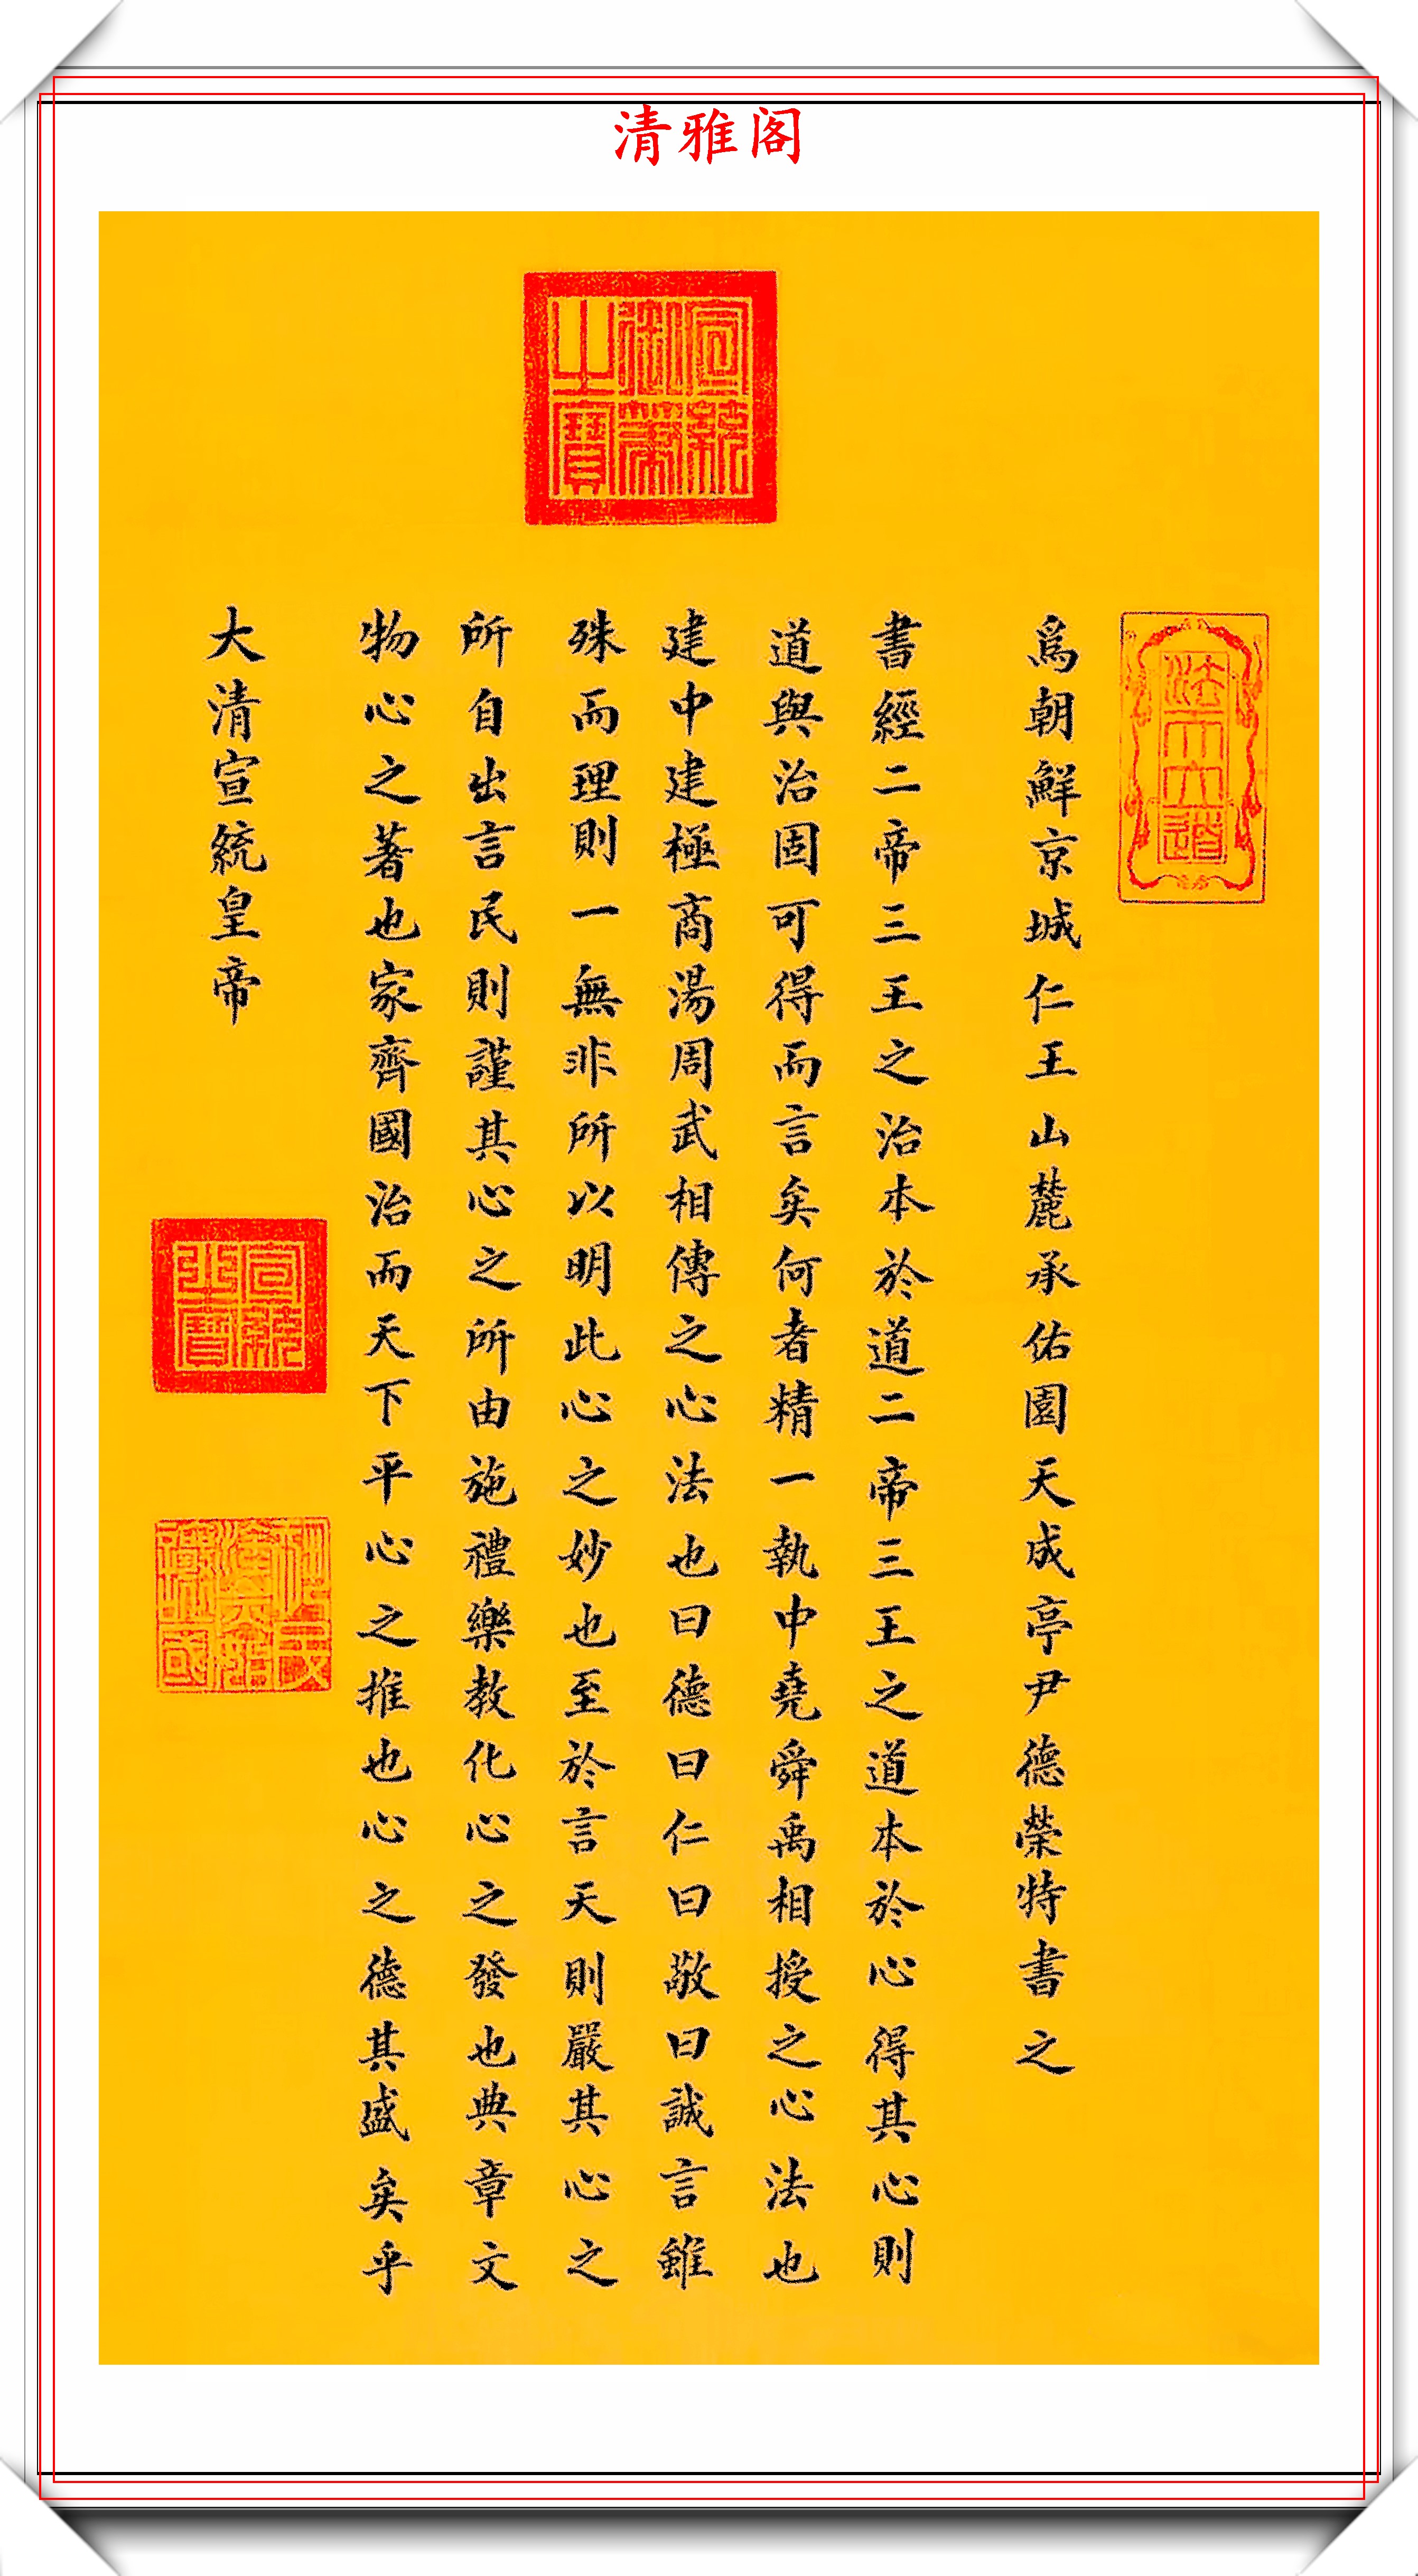 清雅阁
宣統御筆之寶
法天立道
爲朝鮮京城仁王山麓承佑園天成亭尹德榮特書之
書經二帝三王之治本於道二帝三王之道本於心得其心則
道與治固可得而言矣何者精一執中堯舜禹相授之心法也
建中建極商湯周武相傳之心法也曰德曰仁曰敬曰誠言雖
殊而理則一無非所以明此心之妙也至於言天則嚴其心之
所自出言民則謹其心之所由施禮樂教化心之發也典章文
物心之著也家齊國治而天下平心之推也心之德其盛矣乎
大清宣統皇帝
宣統之寶